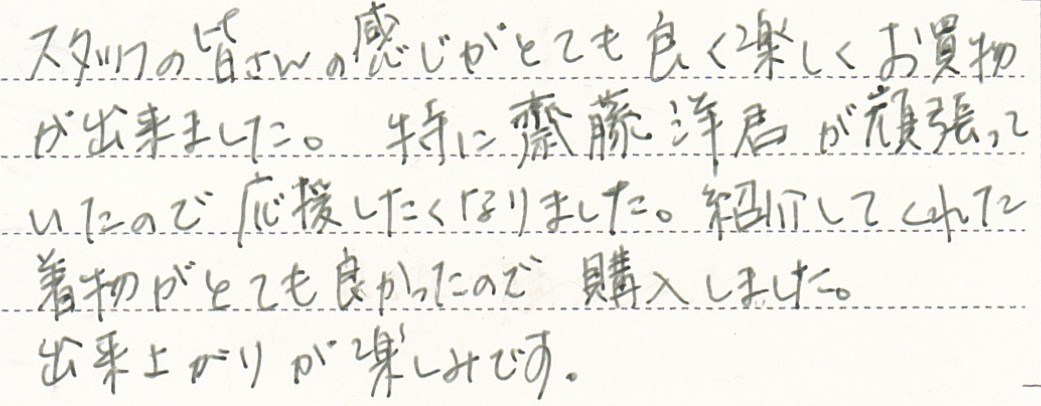 スタッフの皆さんの感じがとても良く楽しくお買物
が出来ました。特に齋藤洋君が頑張って
いたので応援したくなりました。紹介してくれた
着物がとても良かったので購入しました。
出来上がりが楽しみです。